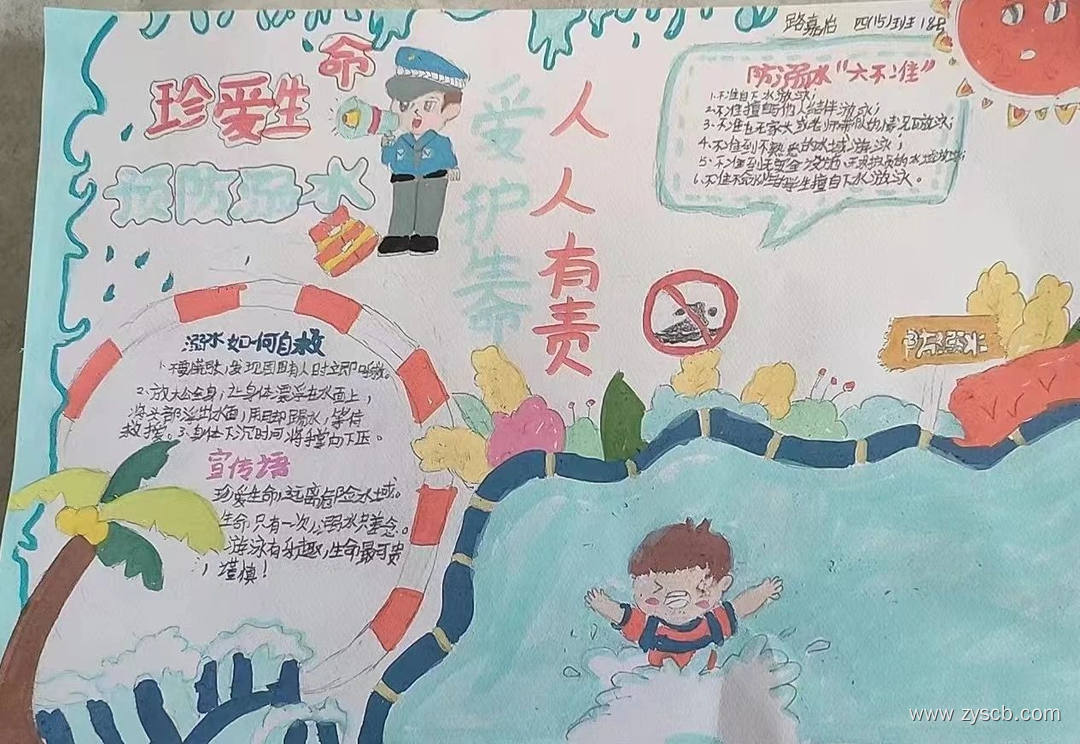 路嘉怡 四(15)班 18号
珍爱生命
预防溺水
爱护生命
人人有责
防溺水"六不准"
1.不准私自下水游泳;
2.不准擅自与他人结伴游泳;
3.不准在无家长或老师带队的情况下游泳;
4.不准到不熟悉的水域游泳;
5.不准到无安全设施、无救护人员的水域游泳;
6.不准不会水性的学生擅自下水游泳。
防溺水
溺水如何自救
发现周围有人时立即呼救。
2.放松全身,让身体漂浮在水面上,
将头部浮出水面,用脚踢水,等待
救援。3.身体下沉时间将掌向下压。
宣传语
珍爱生命,远离危险水域。
生命只有一次
游泳有乐趣,生命最可贵
谨慎!
www.zyscb.com